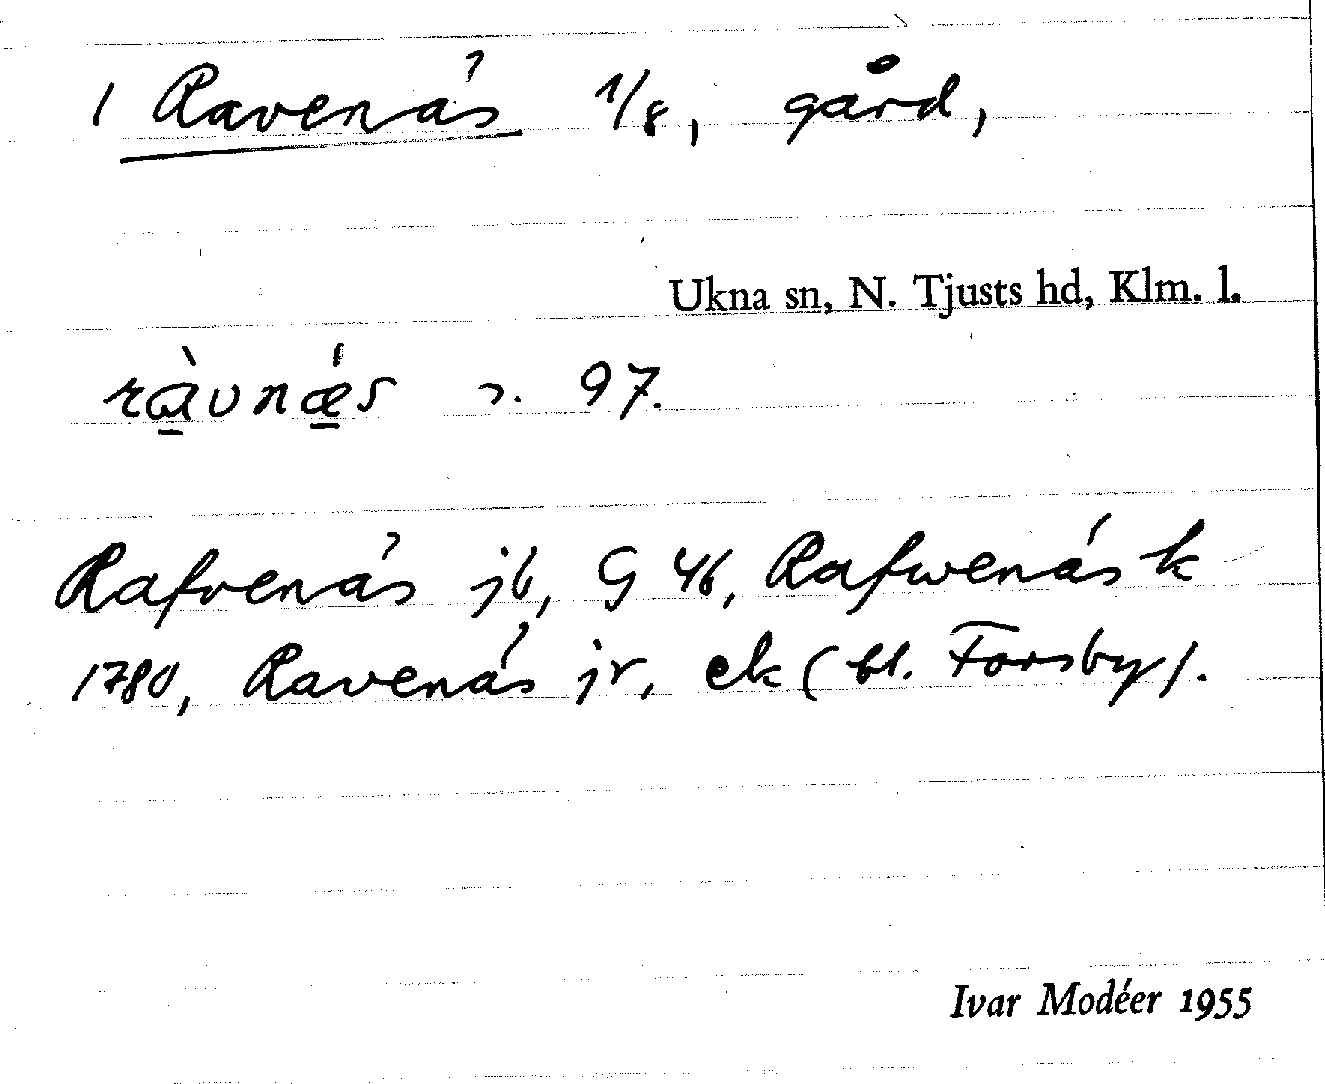 1 Ravenäs 1/8, gård,
Ukna sn, N. Tjusts hd, Klm. l.
ràvnæ̀s 97.
Rafvenäs jb, G 46, Rafwenäs k
1780, Ravenäs jr, ek (bl. Forsby).
Ivar Modéer 1955